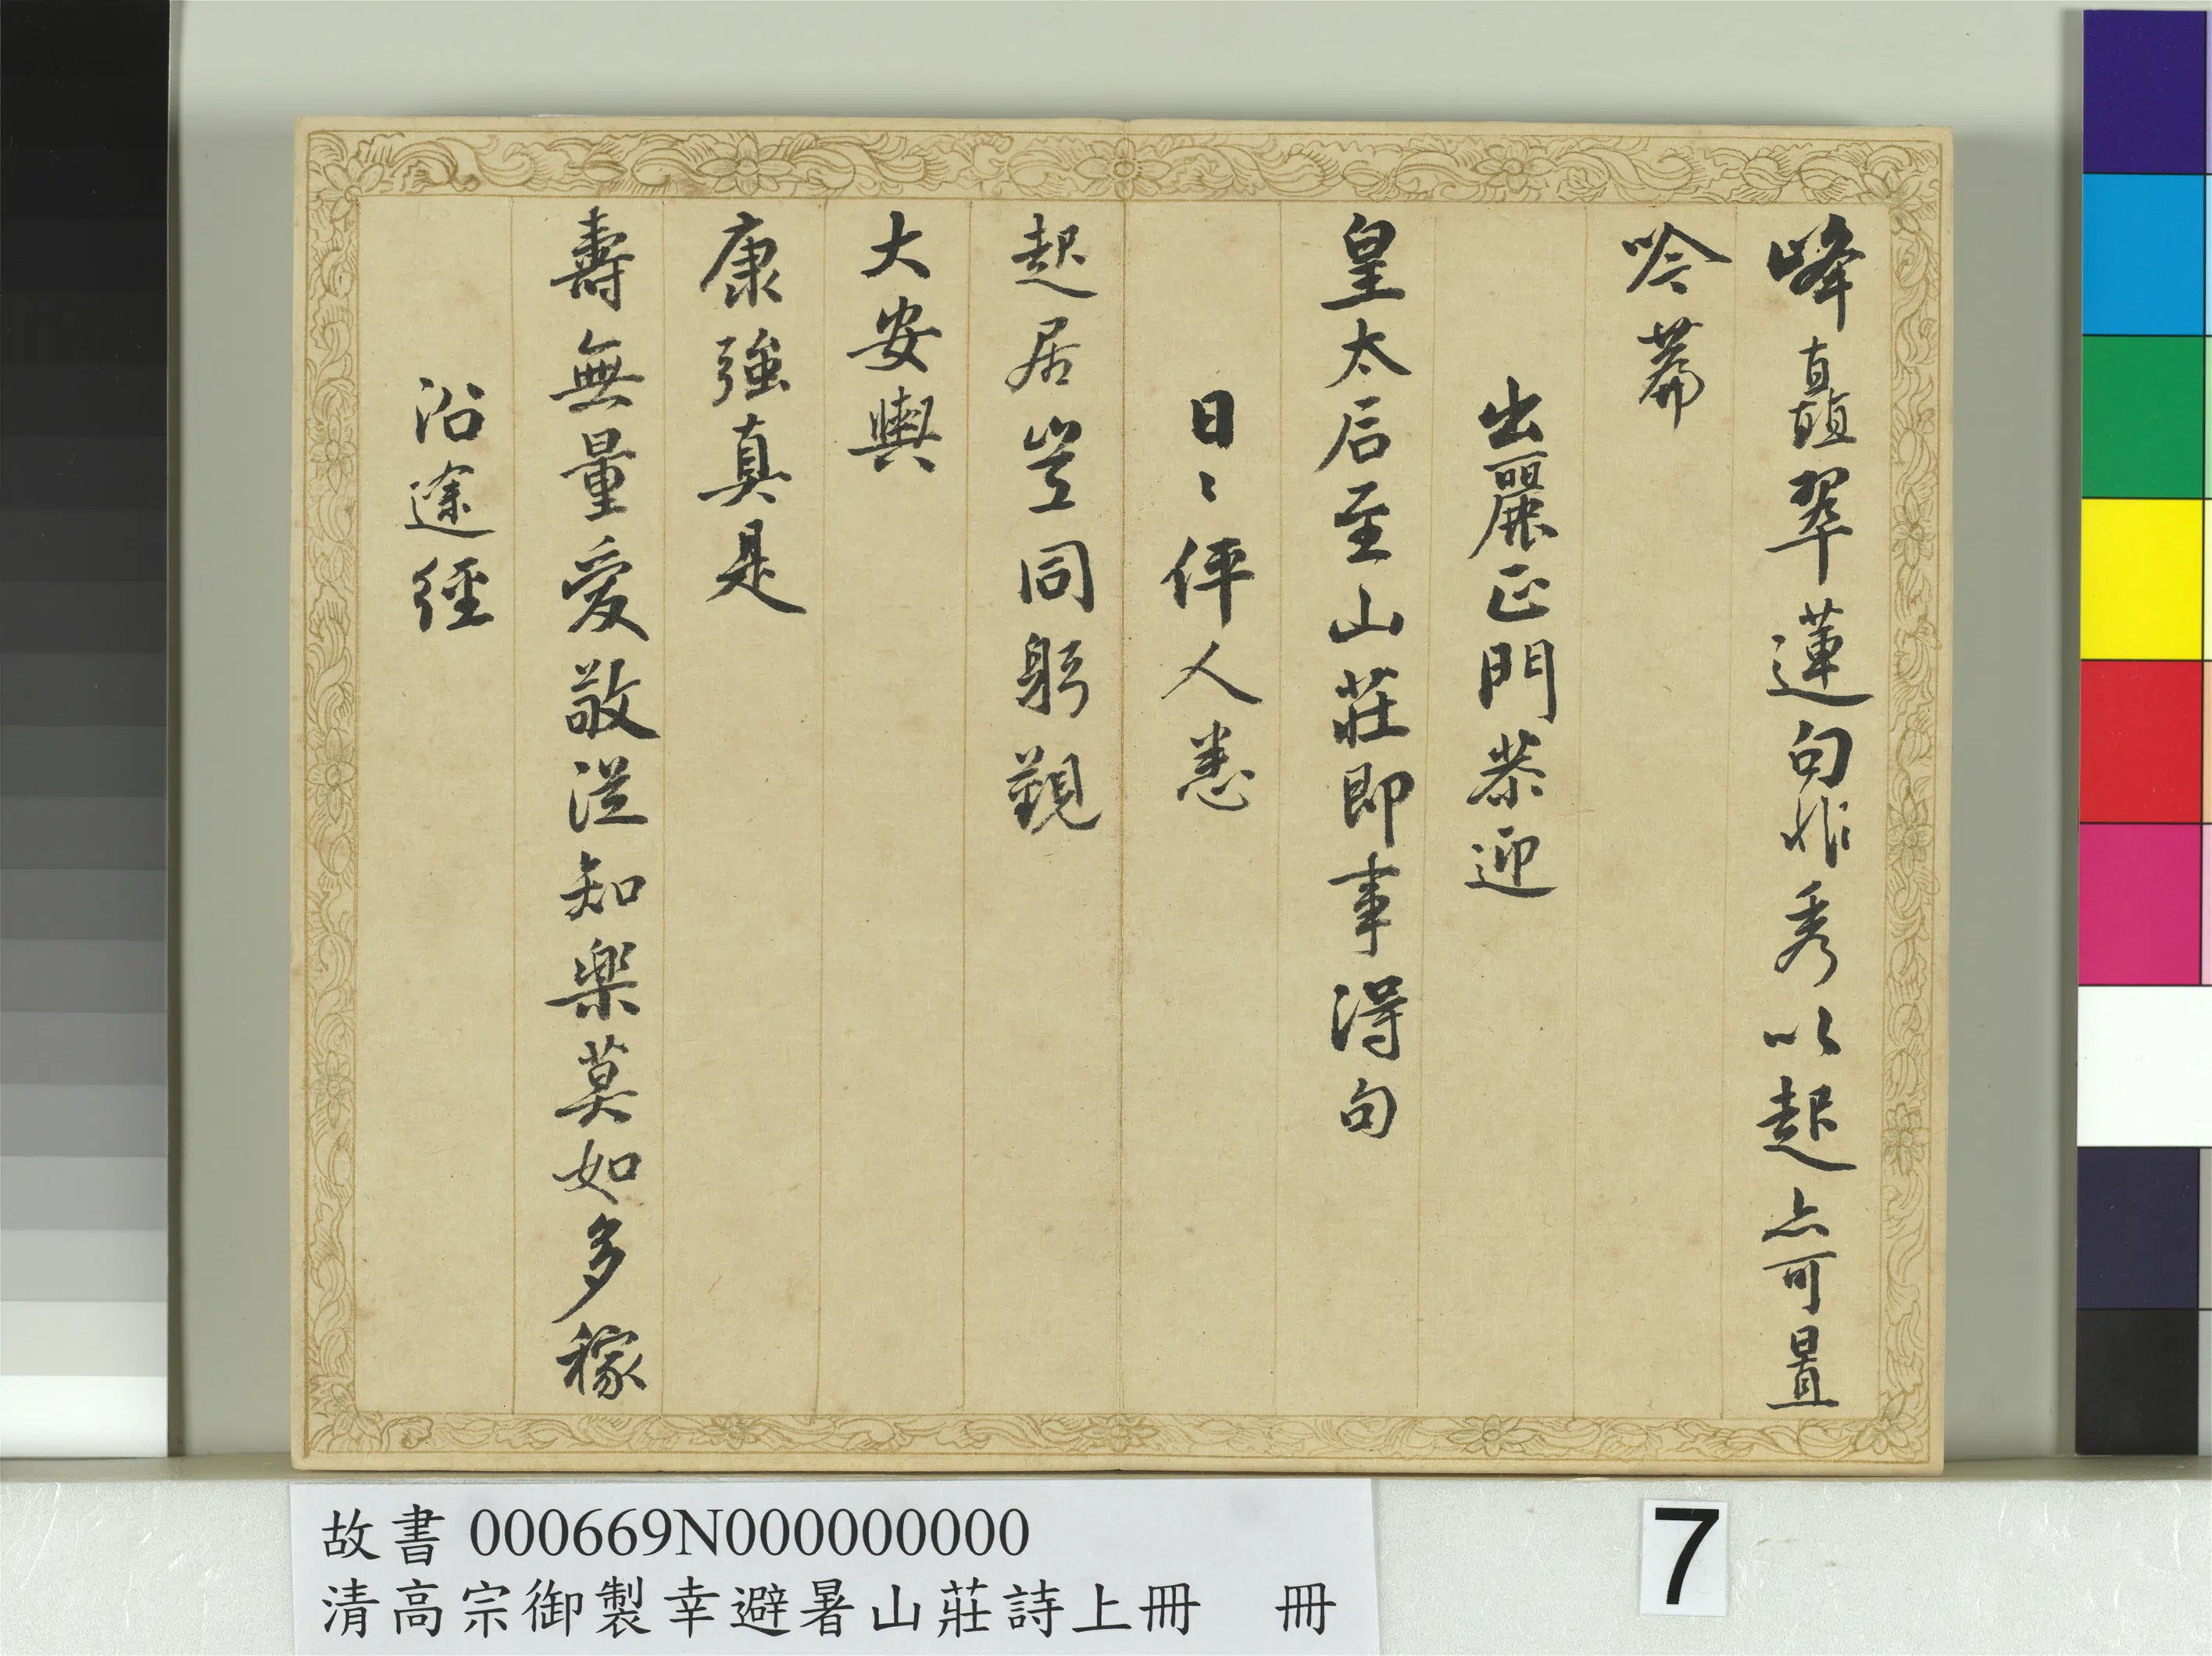 峰矗翠蓮句秀以起亦可置
吟篇
出麗正門恭迎
皇太后至山莊即事得句
日〻伻人悉
起居豈同躬覲
大安輿
康強真是
壽無量愛敬從知樂莫如多稼
沿途經
故書 000669N000000000
清高宗御製幸避暑山莊詩上冊　冊
7